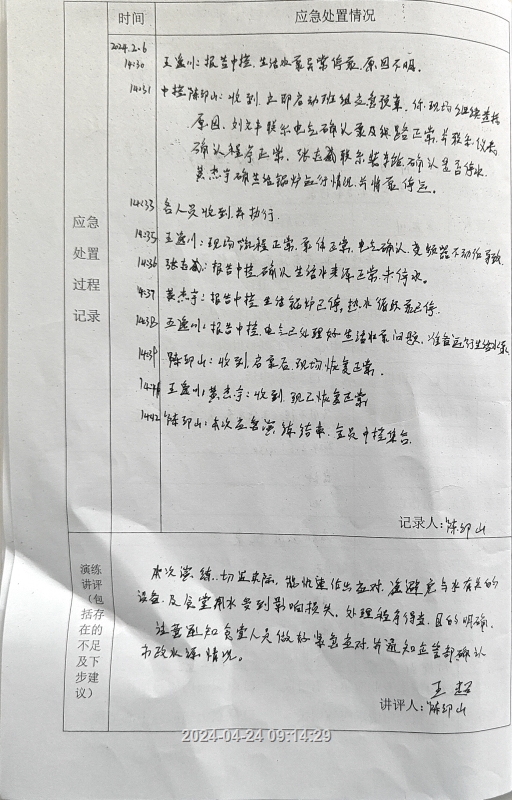 时间 应急处置情况
2024.2.6
14:30 王孟川：报告中控，生活水泵异常停泵，原因不明。
14:31 中控陈印山：收到，立即启动班组应急预案，你现场继续查找
原因，刘光丰联系电气确认泵及线路正常，并联系仪表
确认程序正常，张志勐联系 确认是否停水，
黄杰宇确认生活锅炉运行情况，并情 停运。
14:33 各人员收到，并执行。
14:35 王孟川：现场流程正常，泵体正常，电气确认，变频器不动作导致
14:36 张志勐：报告中控，确认生活水来源正常，未停水。
14:37 黄杰宇：报告中控，生活锅炉已停，热水循环泵已停。
14:38 王孟川：报告中控，电气已处理好生活水泵问题，准备运行生活水泵
14:39 陈印山：收到，启泵后，现场恢复正常。
14:41 王孟川，黄杰宇：收到，现已恢复正常
14:42 陈印山：本次应急演练结束，全员中控集合。
应急
处置
过程
记录
记录人：陈印山
演练
讲评
（包
括存
在的
不足
及下
步建
议）
本次演练，切近实际，能快速作出应对，避免与水有关的
设备及食堂用水受到影响损失，处理程序得当，目的明确。
注意通知食堂人员做好紧急应对，并通知 部确认
市政水源情况。
王超
讲评人：陈印山
2024-04-24 09:14:29